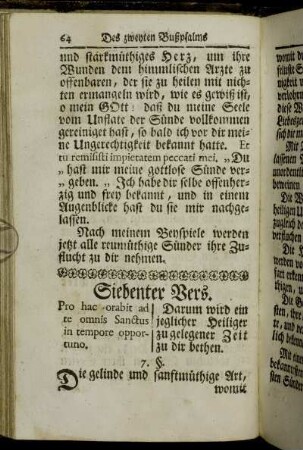 64 Des zweyten Bußpsalms
und starkmüthiges Herz, um ihre
Wunden dem himmlischen Arzte zu
offenbaren, der sie zu heilen mit nich-
ten ermangeln wird, wie es gewiß ist,
o mein GOtt: daß du meine Seele
vom Unflate der Sünde vollkommen
gereiniget hast, so bald ich vor dir mei-
ne Ungerechtigkeit bekannt hatte. Et
tu remisisti impietatem peccati mei. „Du
„ hast mir meine gottlose Sünde ver-
„ geben. „ Ich habe dir selbe offenher-
zig und frey bekannt, und in einem
Augenblicke hast du sie mir nachge-
lassen.
Nach meinem Beyspiele werden
jetzt alle reumüthige Sünder ihre Zu-
flucht zu dir nehmen.
Siebenter Vers.
Pro hac orabit ad
te omnis Sanctus
in tempore oppor-
tuno.
Darum wird ein
jeglicher Heiliger
zu gelegener Zeit
zu dir bethen.
7. §.
Die gelinde und sanftmüthige Art,
womit